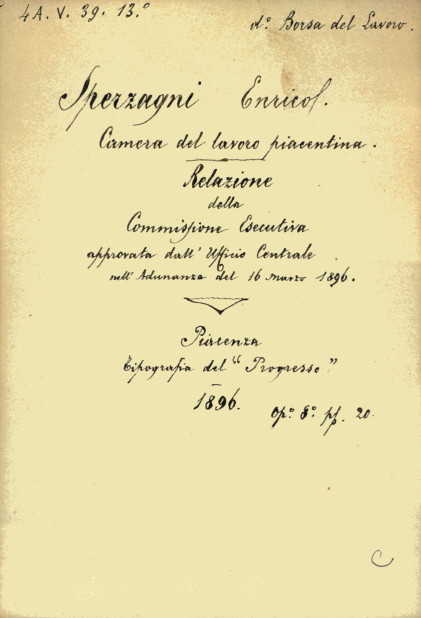 4 A. V. 39. 13.º
d.º Borsa del Lavoro.
Spezzagni Enrico.
Camera del lavoro piacentina.
Relazione
della
Commissione Esecutiva
approvata dall' Ufficio Centrale
nell' Adunanza del 16 Marzo 1896.
Piacenza
Tipografia del "Progresso"
1896.
op.º 8.º pp. 20.
C